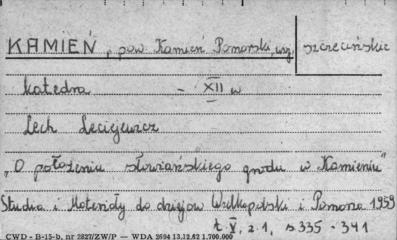 KAMIEŃ, pow. Kamień Pomorski, woj. szczecińskie
katedra - XII w
Lech Leciejewicz
"O położeniu słowiańskiego grodu w Kamieniu"
Studia i Materiały do dziejów Wielkopolski i Pomorza 1959
t. V, z. 1, s 335 - 341
CWD - B-15-b, nr 2827/ZW/P — WDA 2694 13.12.62 1.700.000